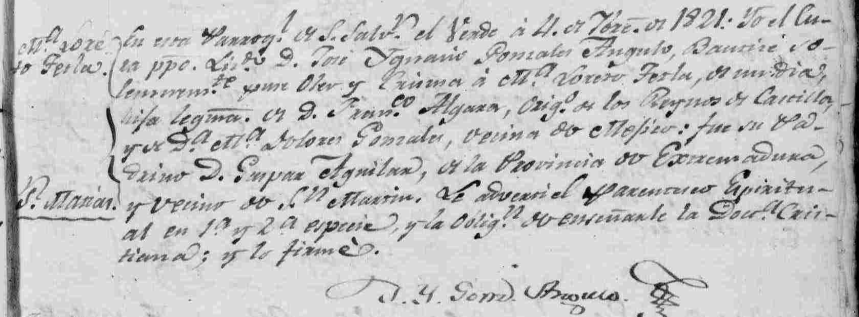 Mª Loré
to Tecla.
En esta Parroqˡ. de S. Salvʳ. el Verde à 4. de Xbrē. de 1821. Yo el Cu-
ra ppo. Licdo D. José Ygnacio Gonzales Angulo, Bauticé so-
lemnemte. puse Oleo y Crisma à Mª Loreto Tecla, de un dia,
hija legmª. de D. Francō Algara, Origˢ. de los Reynos de Castilla,
y de Dª Mª Dolores Gonzales, vecina de Mexico: fue su Pa-
drino D. Gaspar Aguilar, de la Provincia de Extremadura,
y vecino de Sⁿ Martin. Le adverti el Parentesco Espiritu-
al en 1ª y 2ª especie, y la Obligⁿ de enseñarle la Docª. Cris-
tiana; y lo firmè.
J. Y. Gonz. Angulo.